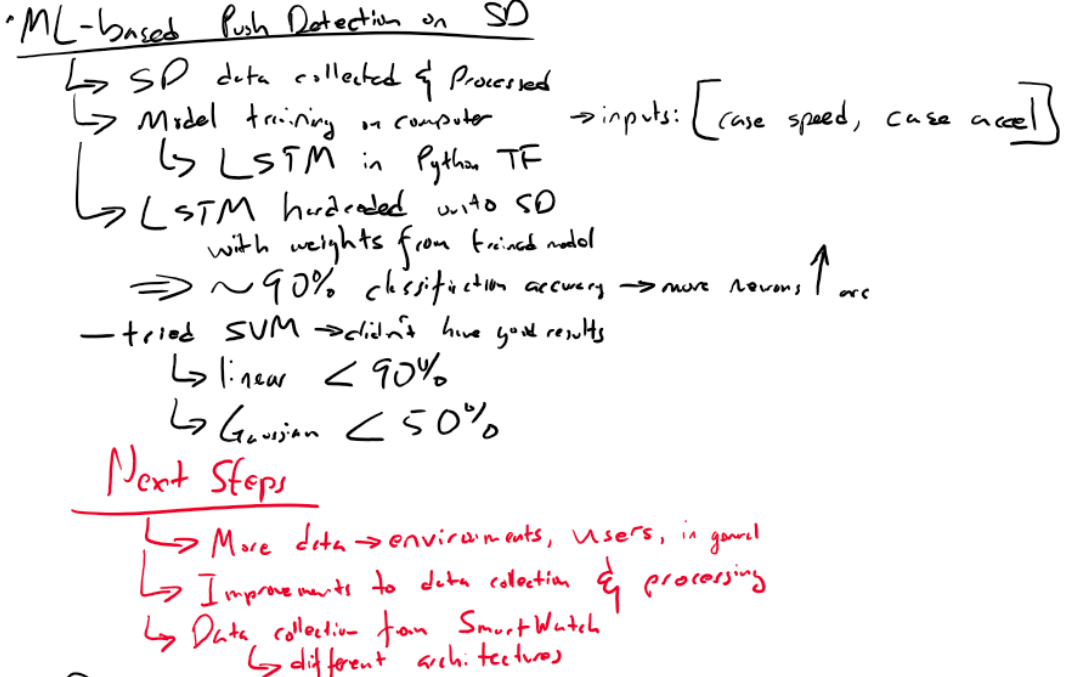 • ML-based Push Detection on SD
↳ SD data collected & Processed
↳ Model training on computer → inputs: [case speed, case accel]
↳ LSTM in Python TF
↳ LSTM hardcoded onto SD
with weights from trained model
⇒ ~90% classification accuracy → more neurons ↑ acc
- tried SVM → didn't have good results
↳ linear < 90%
↳ Gaussian < 50%
Next Steps
↳ More data → environments, users, in general
↳ Improvements to data collection & processing
↳ Data collection from SmartWatch
↳ different architectures